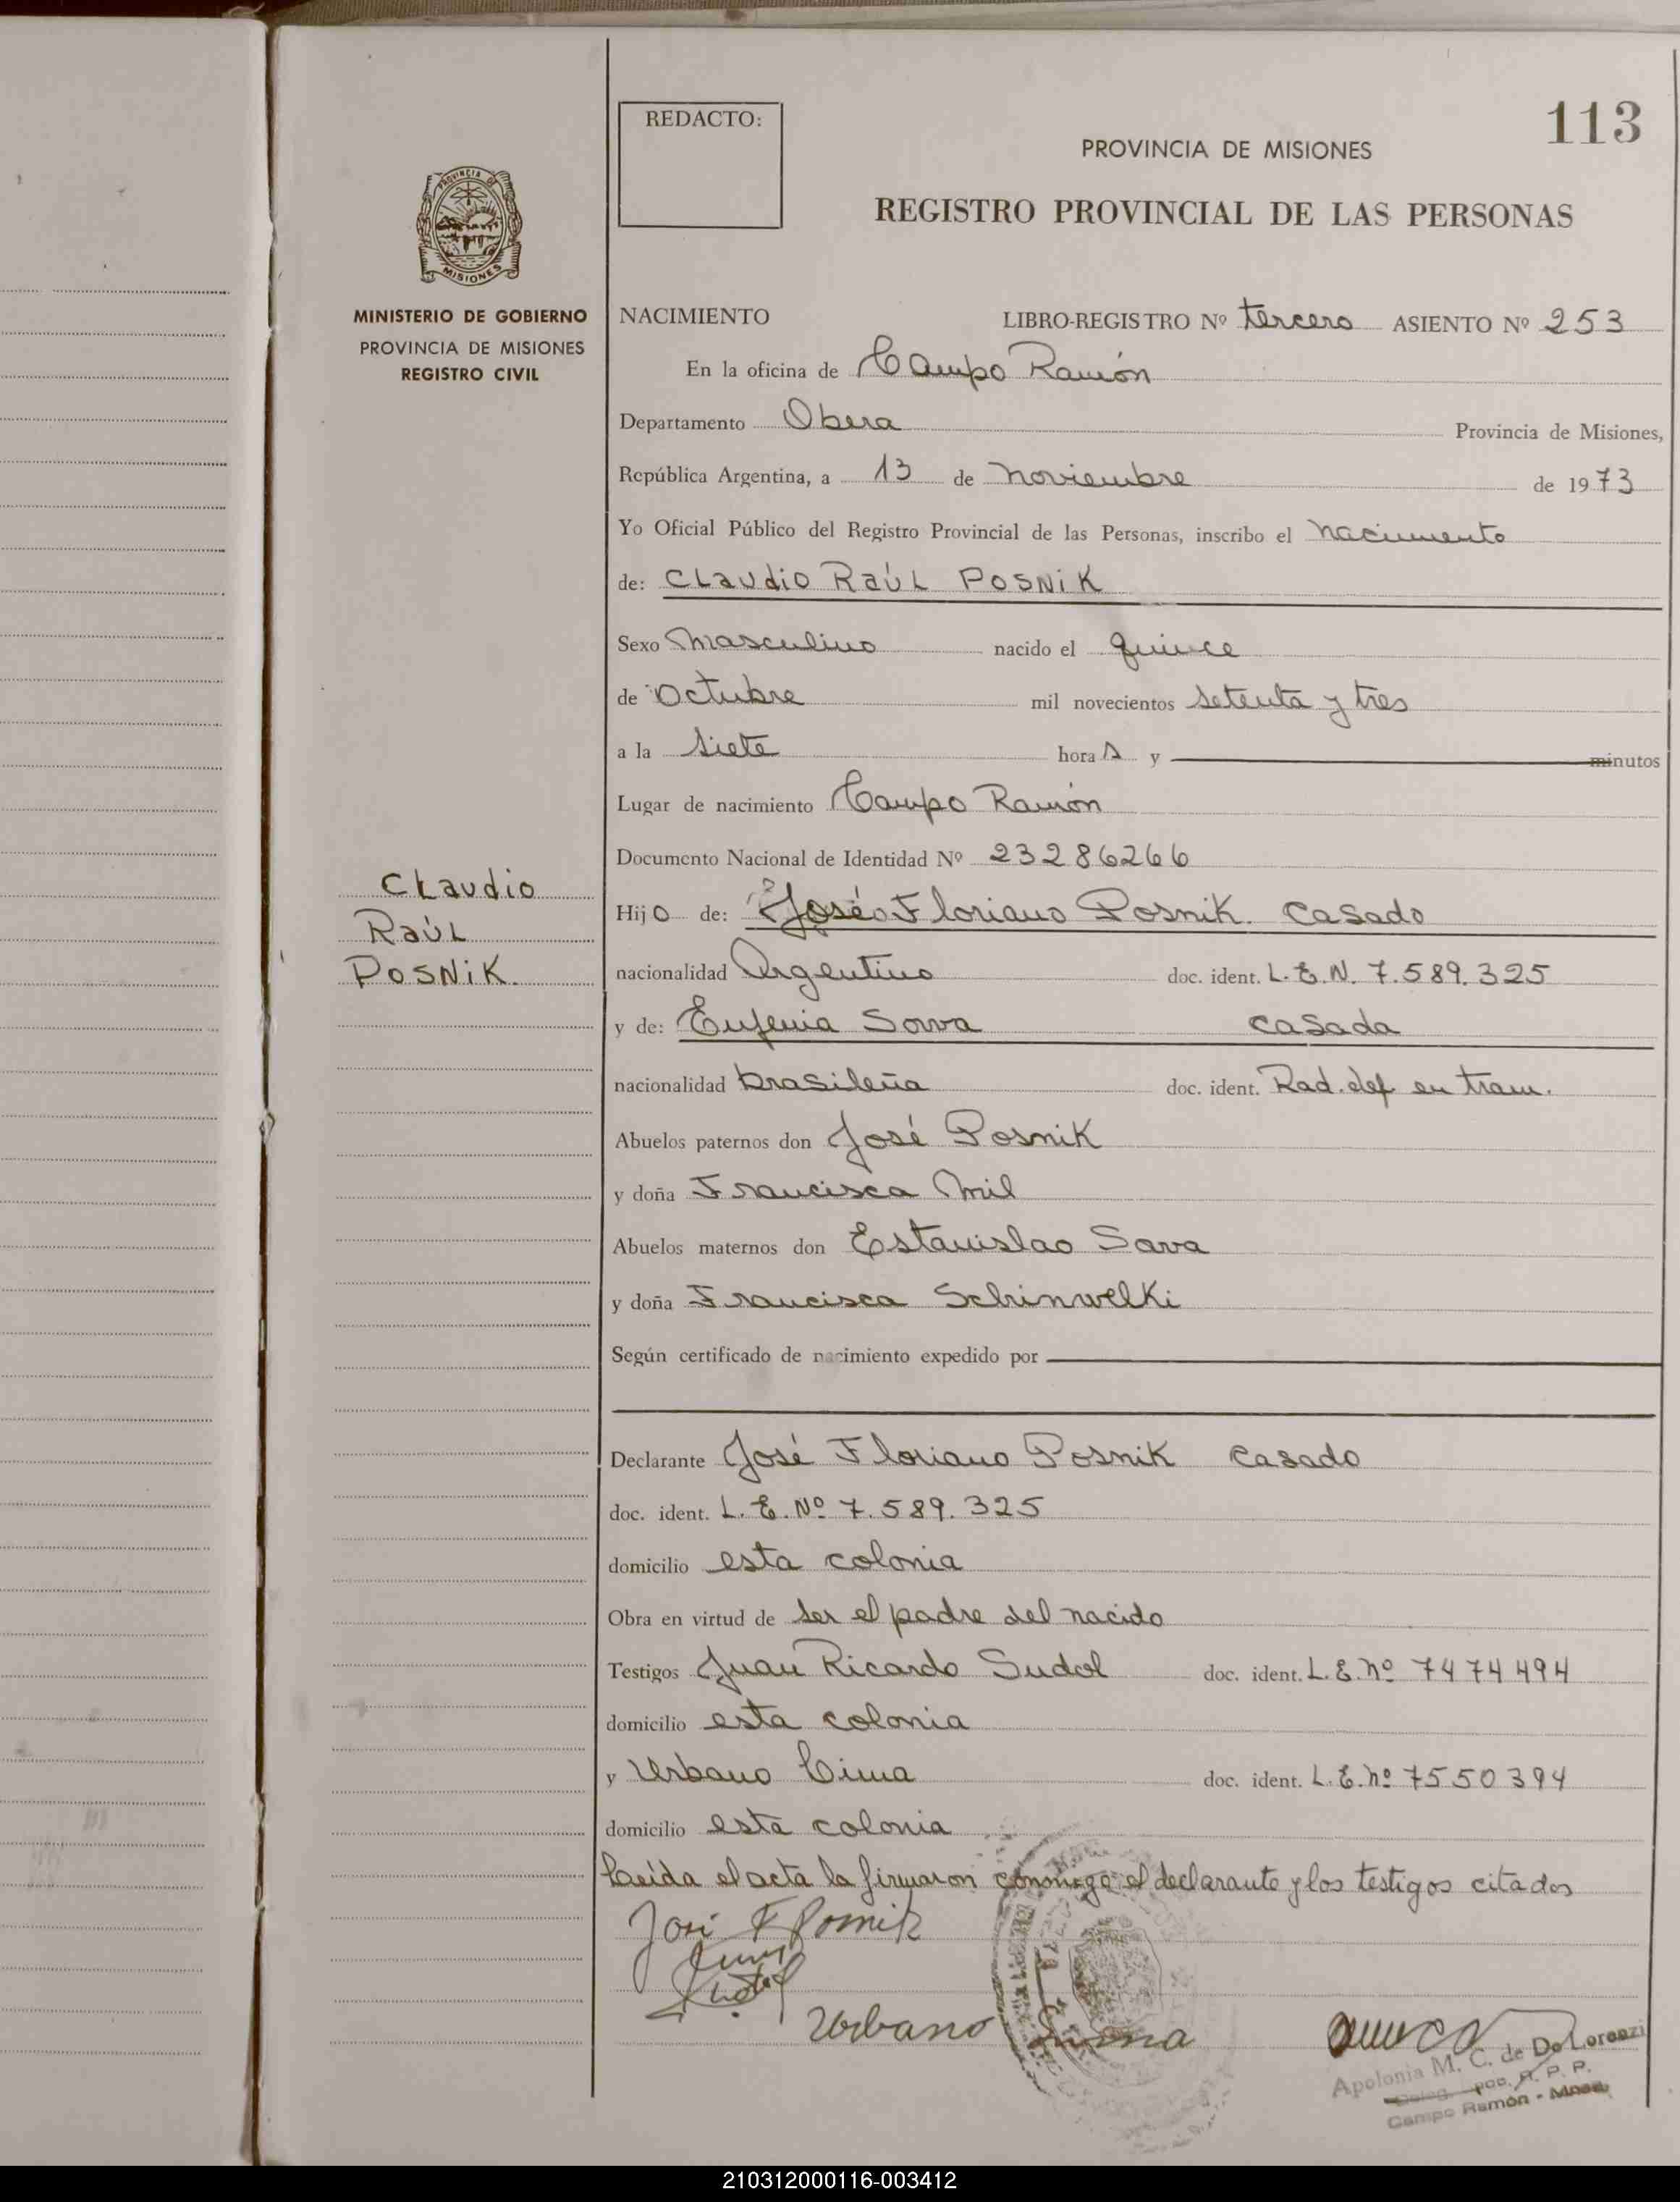 113
REDACTO:
PROVINCIA DE MISIONES
REGISTRO PROVINCIAL DE LAS PERSONAS
PROVINCIA DE
MISIONES
MINISTERIO DE GOBIERNO
PROVINCIA DE MISIONES
REGISTRO CIVIL
NACIMIENTO LIBRO-REGISTRO Nº tercero ASIENTO Nº 253
En la oficina de Campo Ramón
Departamento Obera Provincia de Misiones,
República Argentina, a 13 de noviembre de 1973
Yo Oficial Público del Registro Provincial de las Personas, inscribo el nacimiento
de: CLaudio Raúl POSNiK
Sexo masculino nacido el quince
de Octubre mil novecientos setenta y tres
a la siete hora s y minutos
Lugar de nacimiento Campo Ramón
Documento Nacional de Identidad Nº 23286266
Claudio
Raúl
POSNiK.
Hijo de: José Floriano Posnik. casado
nacionalidad Argentino doc. ident. L.E.N. 7.589.325
y de: Eufenia Sowa casada
nacionalidad brasileña doc. ident. Rad. def en tram.
Abuelos paternos don José Posnik
y doña Francisca Mil
Abuelos maternos don Estanislao Sava
y doña Francisca Schinwelki
Según certificado de nacimiento expedido por
Declarante José Floriano Posnik casado
doc. ident. L.E. Nº 7.589.325
domicilio esta colonia
Obra en virtud de ser el padre del nacido
Testigos Juan Ricardo Sudol doc. ident. L.E. nº 7474494
domicilio esta colonia
y Urbano Cima doc. ident. L.E. nº 7550394
domicilio esta colonia
Leída el acta la firmaron conmigo el declarante y los testigos citados
José F Posnik
Urbano
Apolonia M. C. de De Lorenzi
R. P. P.
Campo Ramón - Mnes.
210312000116-003412